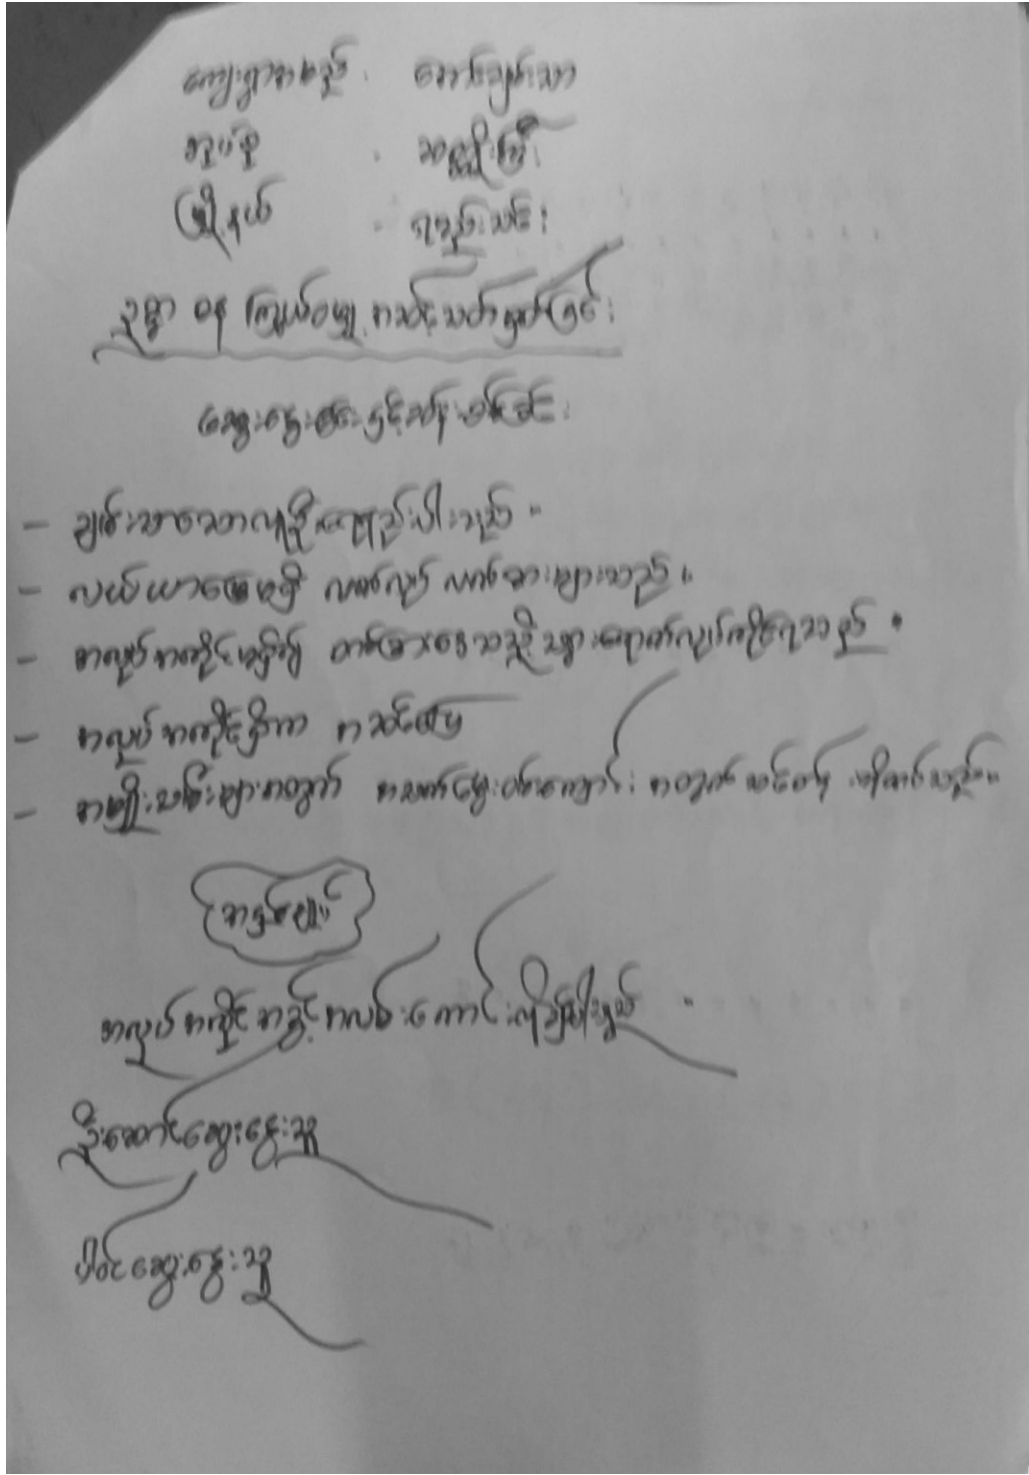 ကျေးရွာအမည် . အောင်ချမ်းသာ
အုပ်စု . ဆူးရိုးကြီး
မြို့နယ် . ရေစည်းသင်း
ဥစ္စာ ဓန ကြွယ်ဝမှု အဆင့်သတ်မှတ်ခြင်း
ဆွေးနွေးခြင်းနှင့်ဆန်းစစ်ခြင်း
– ချမ်းသာသောလူဦးရေနည်းပါးသည်။
– လယ်ယာမြေမရှိ လက်လုပ် လက်စားများသည်။
– အလုပ်အကိုင်မရှိ၍ တစ်ခြားဒေသသို့သွားရောက်လုပ်ကိုင်ရသည်။
– အလုပ်အကိုင်ရှိကာ အဆင်ပြေ
– အမျိုးသမီးများအတွက် အသက်မွေးဝမ်းကျောင်းအတွက် သင်တန်းလိုအပ်သည်။
အနှစ်ချုပ်
အလုပ်အကိုင်အခွင့်အလမ်းကောင်းလိုချင်ပါသည်။
ဦးဆောင်ဆွေးနွေးသူ
ပါဝင်ဆွေးနွေးသူ